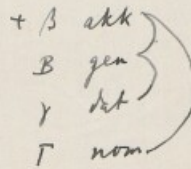 + β akk
B gen
γ dat
Γ nom